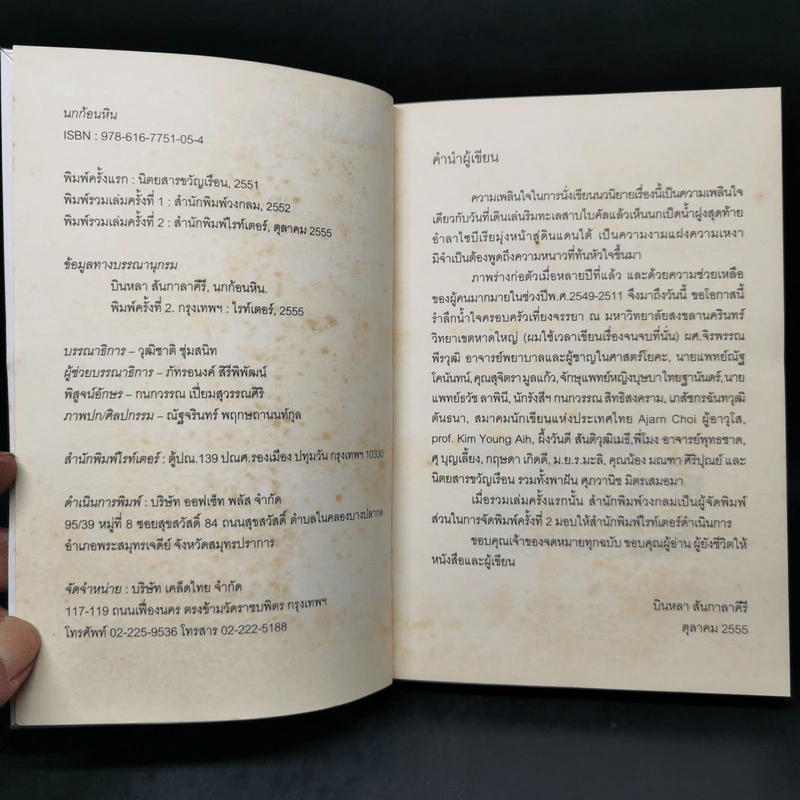 นกก้อนหิน
ISBN : 978-616-7751-05-4
พิมพ์ครั้งแรก : นิตยสารขวัญเรือน, 2551
พิมพ์รวมเล่มครั้งที่ 1 : สำนักพิมพ์วงกลม, 2552
พิมพ์รวมเล่มครั้งที่ 2 : สำนักพิมพ์ไรท์เตอร์, ตุลาคม 2555
ข้อมูลทางบรรณานุกรม
บินหลา สันกาลาคีรี, นกก้อนหิน.
พิมพ์ครั้งที่ 2. กรุงเทพฯ : ไรท์เตอร์, 2555
บรรณาธิการ – วุฒิชาติ ชุ่มสนิท
ผู้ช่วยบรรณาธิการ – ภัทรอนงค์ สิรีพิพัฒน์
พิสูจน์อักษร – กนกวรรณ เปี่ยมสุวรรณศิริ
ภาพปก/ศิลปกรรม – ณัฐจรินทร์ พฤกษถานนท์กุล
สำนักพิมพ์ไรท์เตอร์ : ตู้ปณ.139 ปณศ.รองเมือง ปทุมวัน กรุงเทพฯ 10330
ดำเนินการพิมพ์ : บริษัท ออฟเซ็ท พลัส จำกัด
95/39 หมู่ที่ 8 ซอยสุขสวัสดิ์ 84 ถนนสุขสวัสดิ์ ตำบลในคลองบางปลากด
อำเภอพระสมุทรเจดีย์ จังหวัดสมุทรปราการ
จัดจำหน่าย : บริษัท เคล็ดไทย จำกัด
117-119 ถนนเฟื่องนคร ตรงข้ามวัดราชบพิตร กรุงเทพฯ
โทรศัพท์ 02-225-9536 โทรสาร 02-222-5188
คำนำผู้เขียน
ความเพลินใจในการนั่งเขียนนวนิยายเรื่องนี้เป็นความเพลินใจ
เดียวกับวันที่เดินเล่นริมทะเลสาบไบคัลแล้วเห็นนกเป็ดน้ำฝูงสุดท้าย
อำลาไซบีเรียมุ่งหน้าสู่ดินแดนใต้ เป็นความงามแฝงความเหงา
มิจำเป็นต้องพูดถึงความหนาวที่ท้นหัวใจขึ้นมา
ภาพร่างก่อตัวเมื่อหลายปีที่แล้ว และด้วยความช่วยเหลือ
ของผู้คนมากมายในช่วงปีพ.ศ.2549-2511 จึงมาถึงวันนี้ ขอโอกาสนี้
รำลึกน้ำใจครอบครัวเที่ยงจรรยา ณ มหาวิทยาลัยสงขลานครินทร์
วิทยาเขตหาดใหญ่ (ผมใช้เวลาเขียนเรื่องจนจบที่นั่น) ผศ.จิรพรรณ
พีรวุฒิ อาจารย์พยาบาลและผู้ชาญในศาสตร์โยคะ, นายแพทย์ณัฐ
โคนันทน์, คุณสุจิตรามูลแก้ว, จักษุแพทย์หญิงบุษบาไทยฐานันดร์, นาย
แพทย์ธวัช ลาพินี, นักรังสีฯ กนกวรรณ สิทธิสงคราม, เภสัชกรฉันทวุฒิ
ตันธนา, สมาคมนักเขียนแห่งประเทศไทย Ajarn Choi ผู้อาวุโส,
prof. Kim Young Aih, ผึ้งวันดี สันติวุฒิเมธี, พี่โมง อาจารย์พุทธชาด,
ศุ บุญเลี้ยง, กฤษดา เกิดดี, ม.ย.ร.มะลิ, คุณน้อง มณฑา ศิริปุณย์ และ
นิตยสารขวัญเรือน รวมทั้งพาฝัน ศุภวานิช มิตรเสมอมา
เมื่อรวมเล่มครั้งแรกนั้น สำนักพิมพ์วงกลมเป็นผู้จัดพิมพ์
ส่วนในการจัดพิมพ์ครั้งที่ 2 มอบให้สำนักพิมพ์ไรท์เตอร์ดำเนินการ
ขอบคุณเจ้าของจดหมายทุกฉบับ ขอบคุณผู้อ่าน ผู้ยังชีวิตให้
หนังสือและผู้เขียน
บินหลา สันกาลาคีรี
ตุลาคม 2555